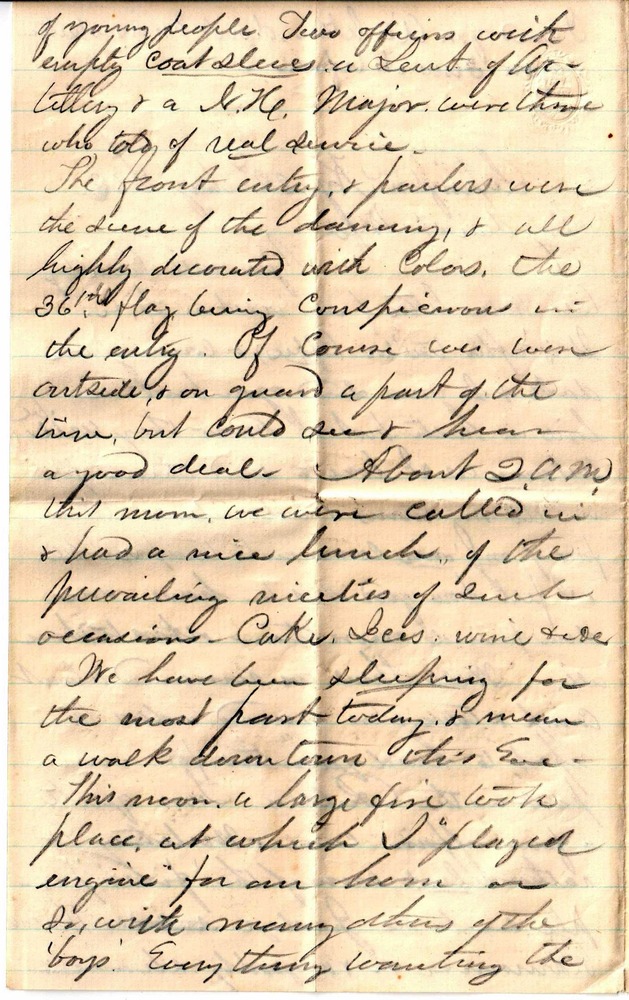 of young people. Two officers with
empty coat sleeves. a Leut of Ar-
tillery & a N.H. Major. were those
who told of real service.
The front entry, & parlors were
the scene of the dancing, & all
highly decorated with Colors. the
36th flag being Conspicuous in
the entry. Of Course we were
outside, & on guard a part of the
time, but could see & hear
a good deal - About 2. a.m.
this morn. we were called in
& had a nice lunch, of the
prevailing niceties of such
occasions - Cake. Ices. wine
We have been sleeping for
the most part today. & mean
a walk down town this Eve -
This noon. a large fire took
place. at which I "played
engine" for an hour or
so, with many others of the
'boys'. Everything wanting the